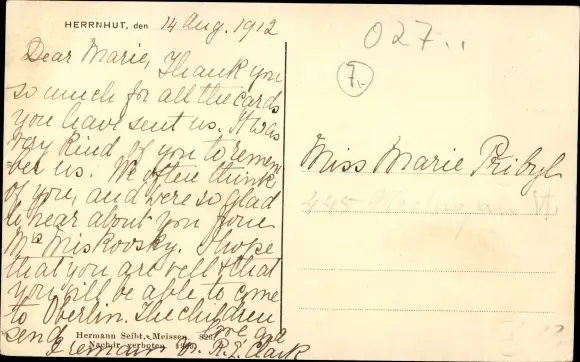 HERRNHUT, den 14 Aug. 1912
Dear Marie, Thank you
so much for all the cards
you have sent us. It was
very kind of you to remem
ber us. We often think
of you, and were so glad
to hear about you from
Mrs Miskovsky. I hope
that you are well & that
you will be able to come
to Oberlin. The children
send love
Hermann Seibt, Meissen.
Nachdr. verboten
R. L. Clark
027..
7.-
Miss Marie Pribyl
445